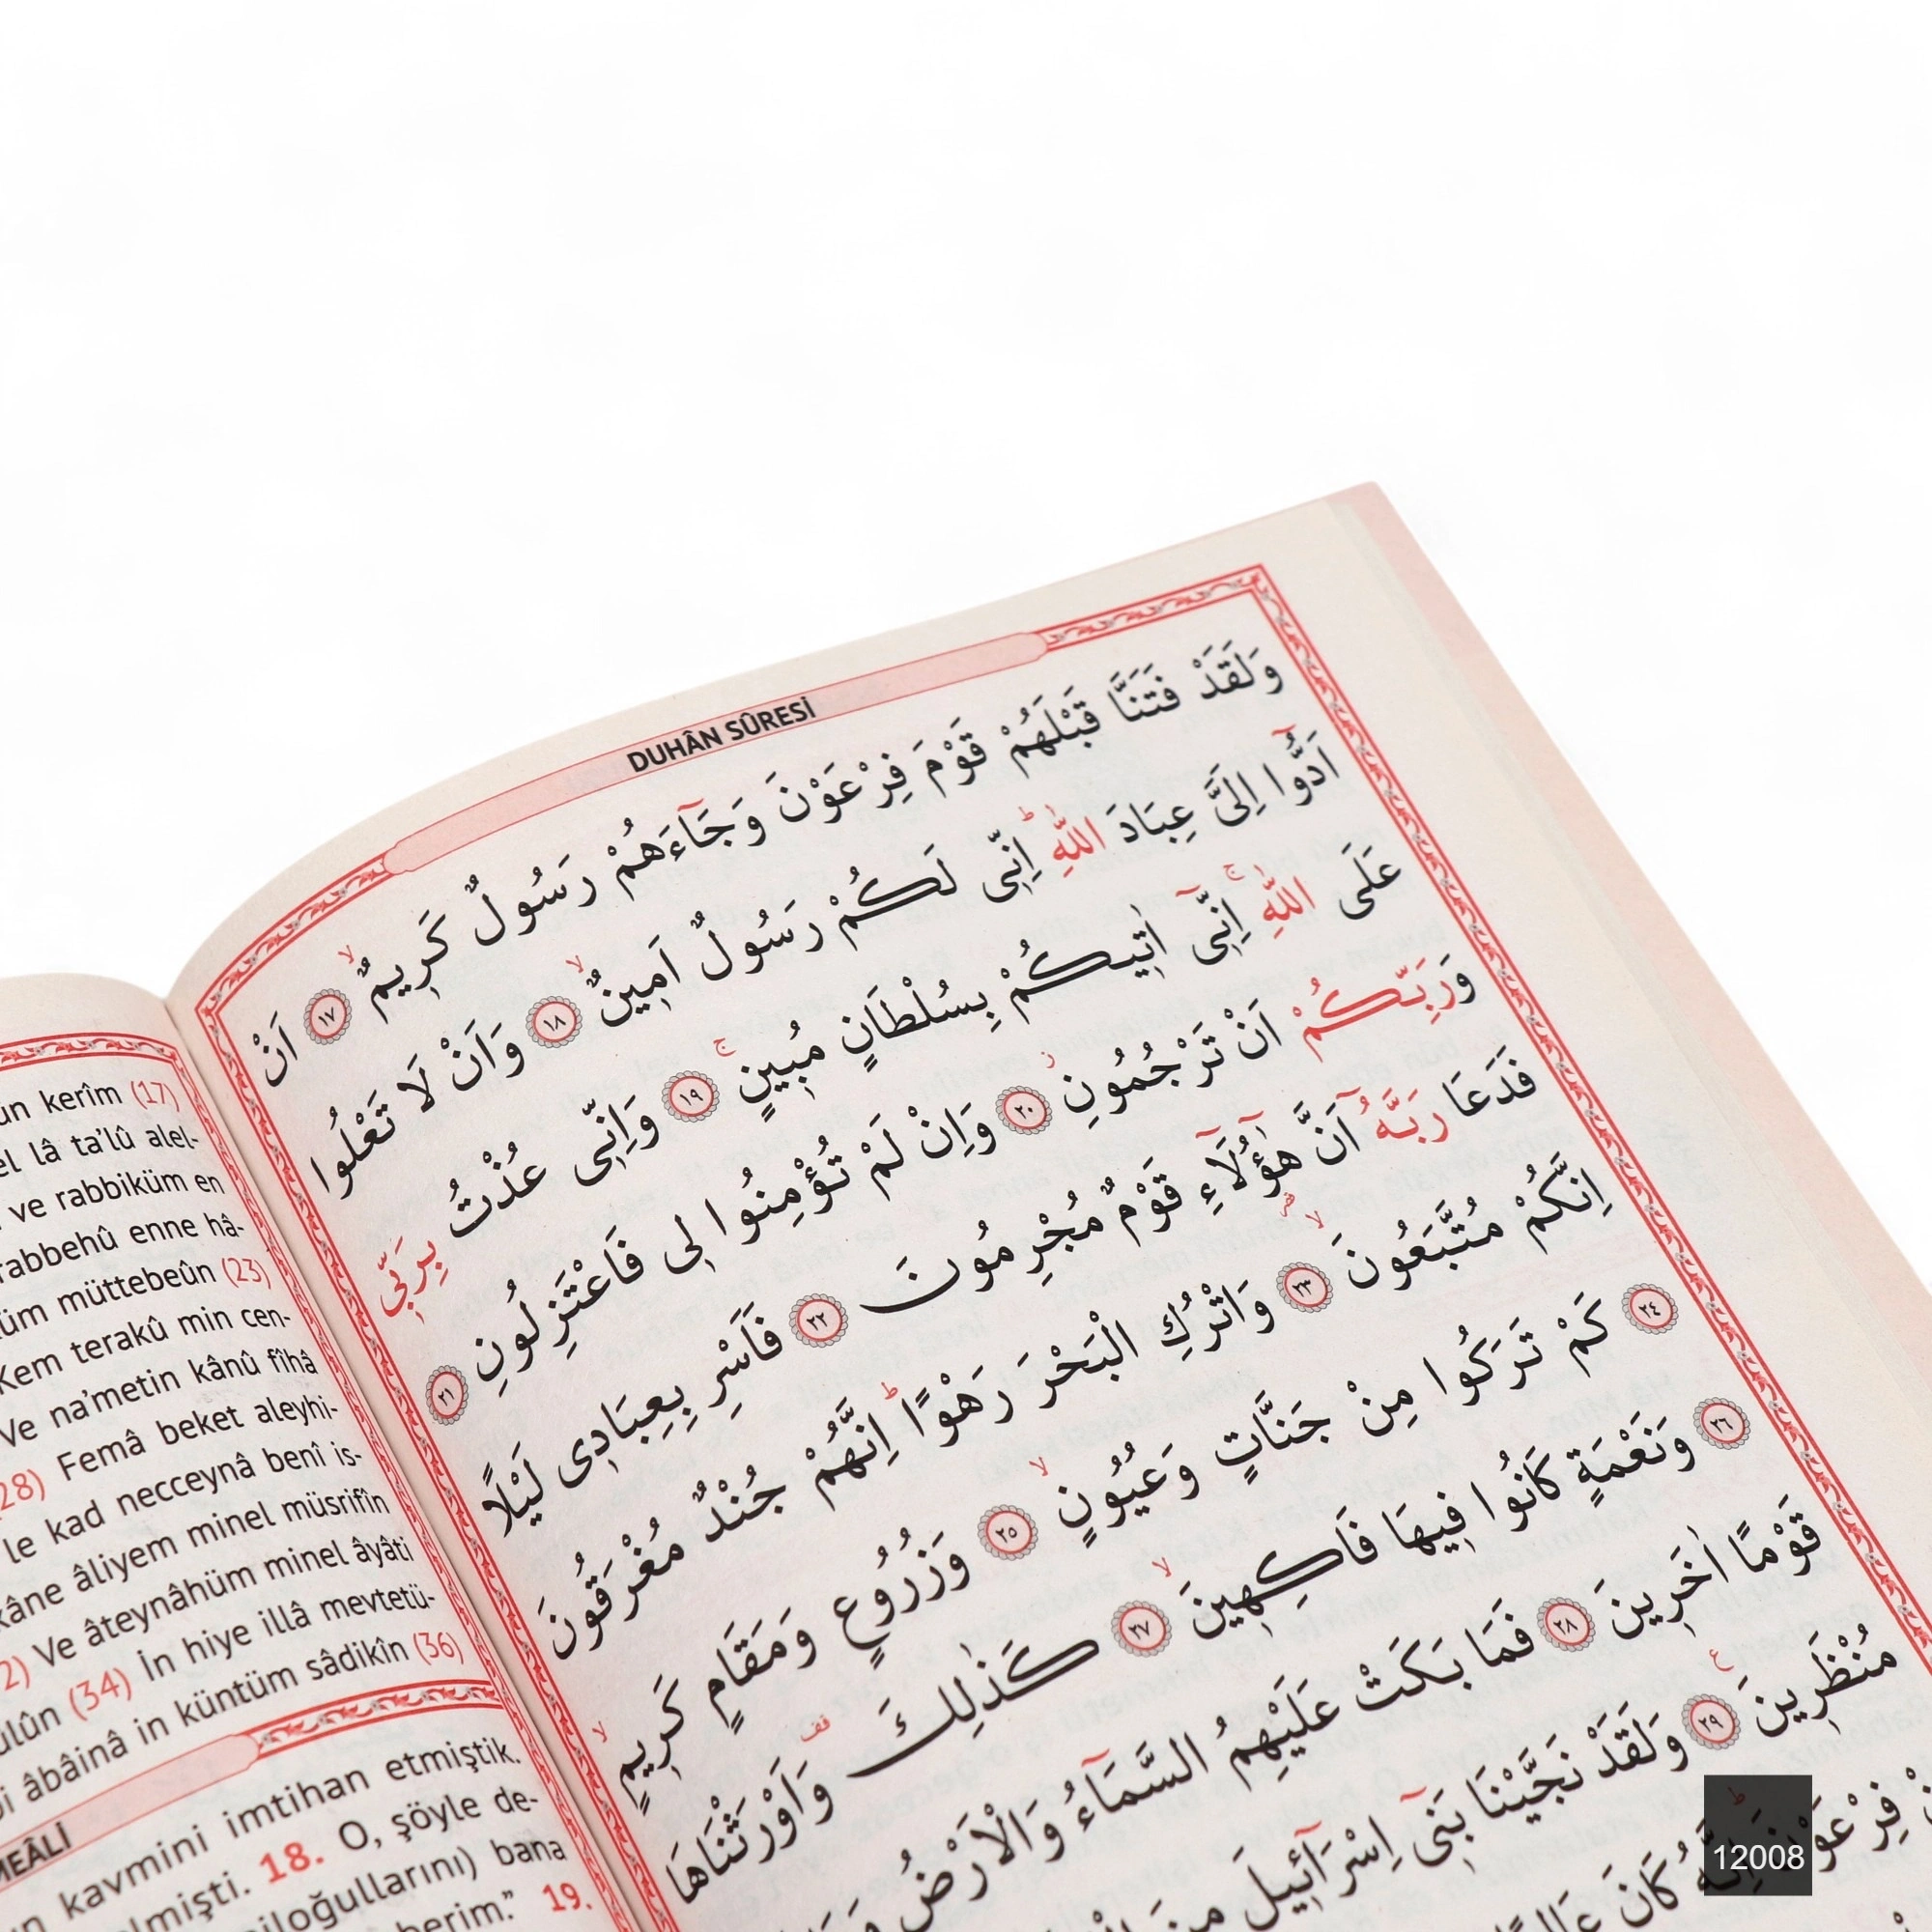 DUHÂN SÛRESİ
وَلَقَدْ فَتَنَّا قَبْلَهُمْ قَوْمَ فِرْعَوْنَ وَجَٓاءَهُمْ رَسُولٌ كَرِيمٌۙ ﴿١٧﴾ اَنْ
اَدُّٓوا اِلَيَّ عِبَادَ اللّٰهِۜ اِنّ۪ى لَكُمْ رَسُولٌ اَم۪ينٌۙ ﴿١٨﴾ وَاَنْ لَا تَعْلُوا
عَلَى اللّٰهِۚ اِنّ۪ٓى اٰت۪يكُمْ بِسُلْطَانٍ مُب۪ينٍۚ ﴿١٩﴾ وَاِنّ۪ى عُذْتُ بِرَبّ۪ى
وَرَبِّكُمْ اَنْ تَرْجُمُونِۘ ﴿٢٠﴾ وَاِنْ لَمْ تُؤْمِنُوا ل۪ى فَاعْتَزِلُونِ ﴿٢١﴾
فَدَعَا رَبَّهُٓ اَنَّ هٰٓؤُ۬لَٓاءِ قَوْمٌ مُجْرِمُونَ ﴿٢٢﴾ فَاَسْرِ بِعِبَاد۪ى لَيْلًا
اِنَّكُمْ مُتَّبَعُونَۙ ﴿٢٣﴾ وَاتْرُكِ الْبَحْرَ رَهْوًاۜ اِنَّهُمْ جُنْدٌ مُغْرَقُونَ
﴿٢٤﴾ كَمْ تَرَكُوا مِنْ جَنَّاتٍ وَعُيُونٍۙ ﴿٢٥﴾ وَزُرُوعٍ وَمَقَامٍ كَر۪يمٍۙ
﴿٢٦﴾ وَنَعْمَةٍ كَانُوا ف۪يهَا فَاكِه۪ينَۙ ﴿٢٧﴾ كَذٰلِكَ وَاَوْرَثْنَاهَا
قَوْمًا اٰخَر۪ينَ ﴿٢٨﴾ فَمَا بَكَتْ عَلَيْهِمُ السَّمَٓاءُ وَالْاَرْضُ
مُنْظَر۪ينَ ﴿٢٩﴾ وَلَقَدْ نَجَّيْنَا بَن۪ٓى اِسْرَٓائ۪يلَ مِنَ
فِرْعَوْنَۜ اِنَّهُ كَانَ
kerîm (17)
lâ ta'lû alel-
ve rabbiküm en
rabbehû enne hâ-
müttebeûn (23)
Kem terakû min cen-
Ve na'metin kânû fîhâ
(28) Femâ beket aleyhi-
le kad necceynâ benî is-
kâne âliyem minel müsrifîn
Ve âteynâhüm minel âyâti
(34) İn hiye illâ mevtetü-
âbâinâ in küntüm sâdikîn (36)
MEÂLİ
kavmini imtihan etmiştik.
18. O, şöyle de-
bana
19.
12008